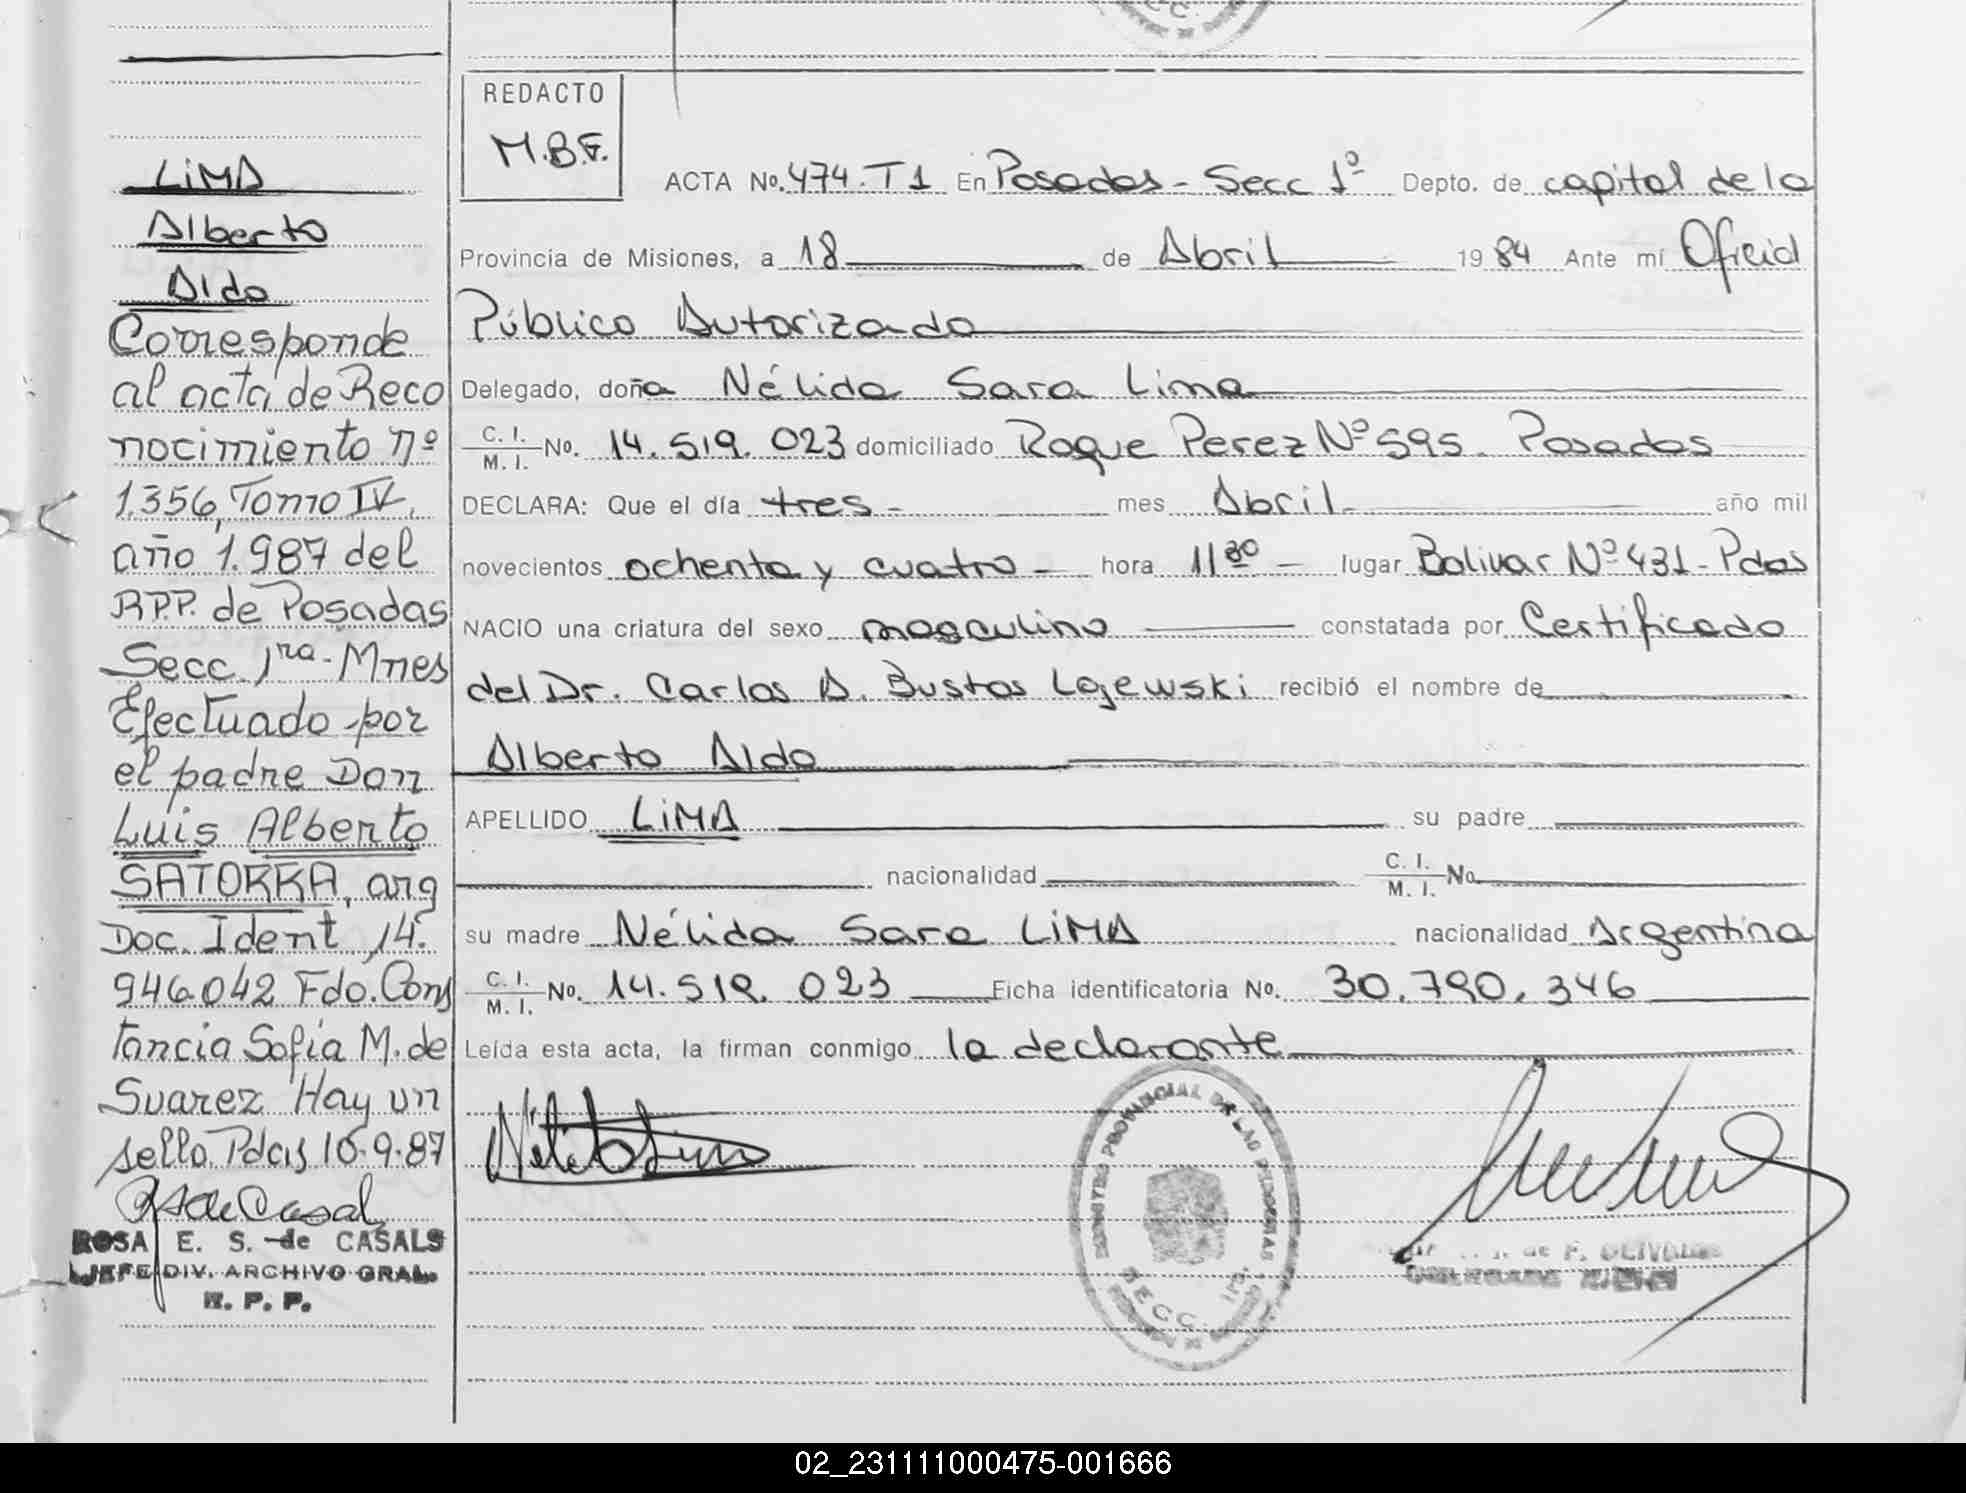 LIMA
Alberto
Aldo
Corresponde
al acta de Reco
nocimiento nº
1.356, Tomo IV,
año 1.987 del
R.P.P. de Posadas
Secc. 1ra. Mnes
Efectuado por
el padre Don
Luis Alberto
SATORRA, arg
Doc. Ident 14.
946.042 Fdo. Cons
tancia Sofia M. de
Suarez Hay un
sello. Pdas 10-9-87
ROSA E. S. de CASALS
JEFE DIV. ARCHIVO GRAL.
R. P. P.
REDACTO
M.B.F.
ACTA No. 474. T1 En Posadas - Secc 1º Depto. de capital de la
Provincia de Misiones, a 18 de Abril 1984 Ante mí Oficial
Público Autorizado
Delegado, doña Nélida Sara Lima
C. I.
M. I. No. 14.519.023 domiciliado Roque Perez Nº 595. Posadas
DECLARA: Que el día tres - mes Abril - año mil
novecientos ochenta y cuatro - hora 11 30 - lugar Bolivar Nº 431 - Pdas
NACIO una criatura del sexo masculino constatada por Certificado
del Dr. Carlos A. Bustos Lajewski recibió el nombre de
Alberto Aldo
APELLIDO LIMA su padre
nacionalidad C. I.
M. I. No.
su madre Nélida Sara LIMA nacionalidad Argentina
C. I.
M. I. No. 14.519.023 Ficha identificatoria No. 30.790.346
Leída esta acta, la firman conmigo la declarante
REGISTRO PROVINCIAL DE LAS PERSONAS
SECC.
de F. OLIVARES
02_231111000475-001666